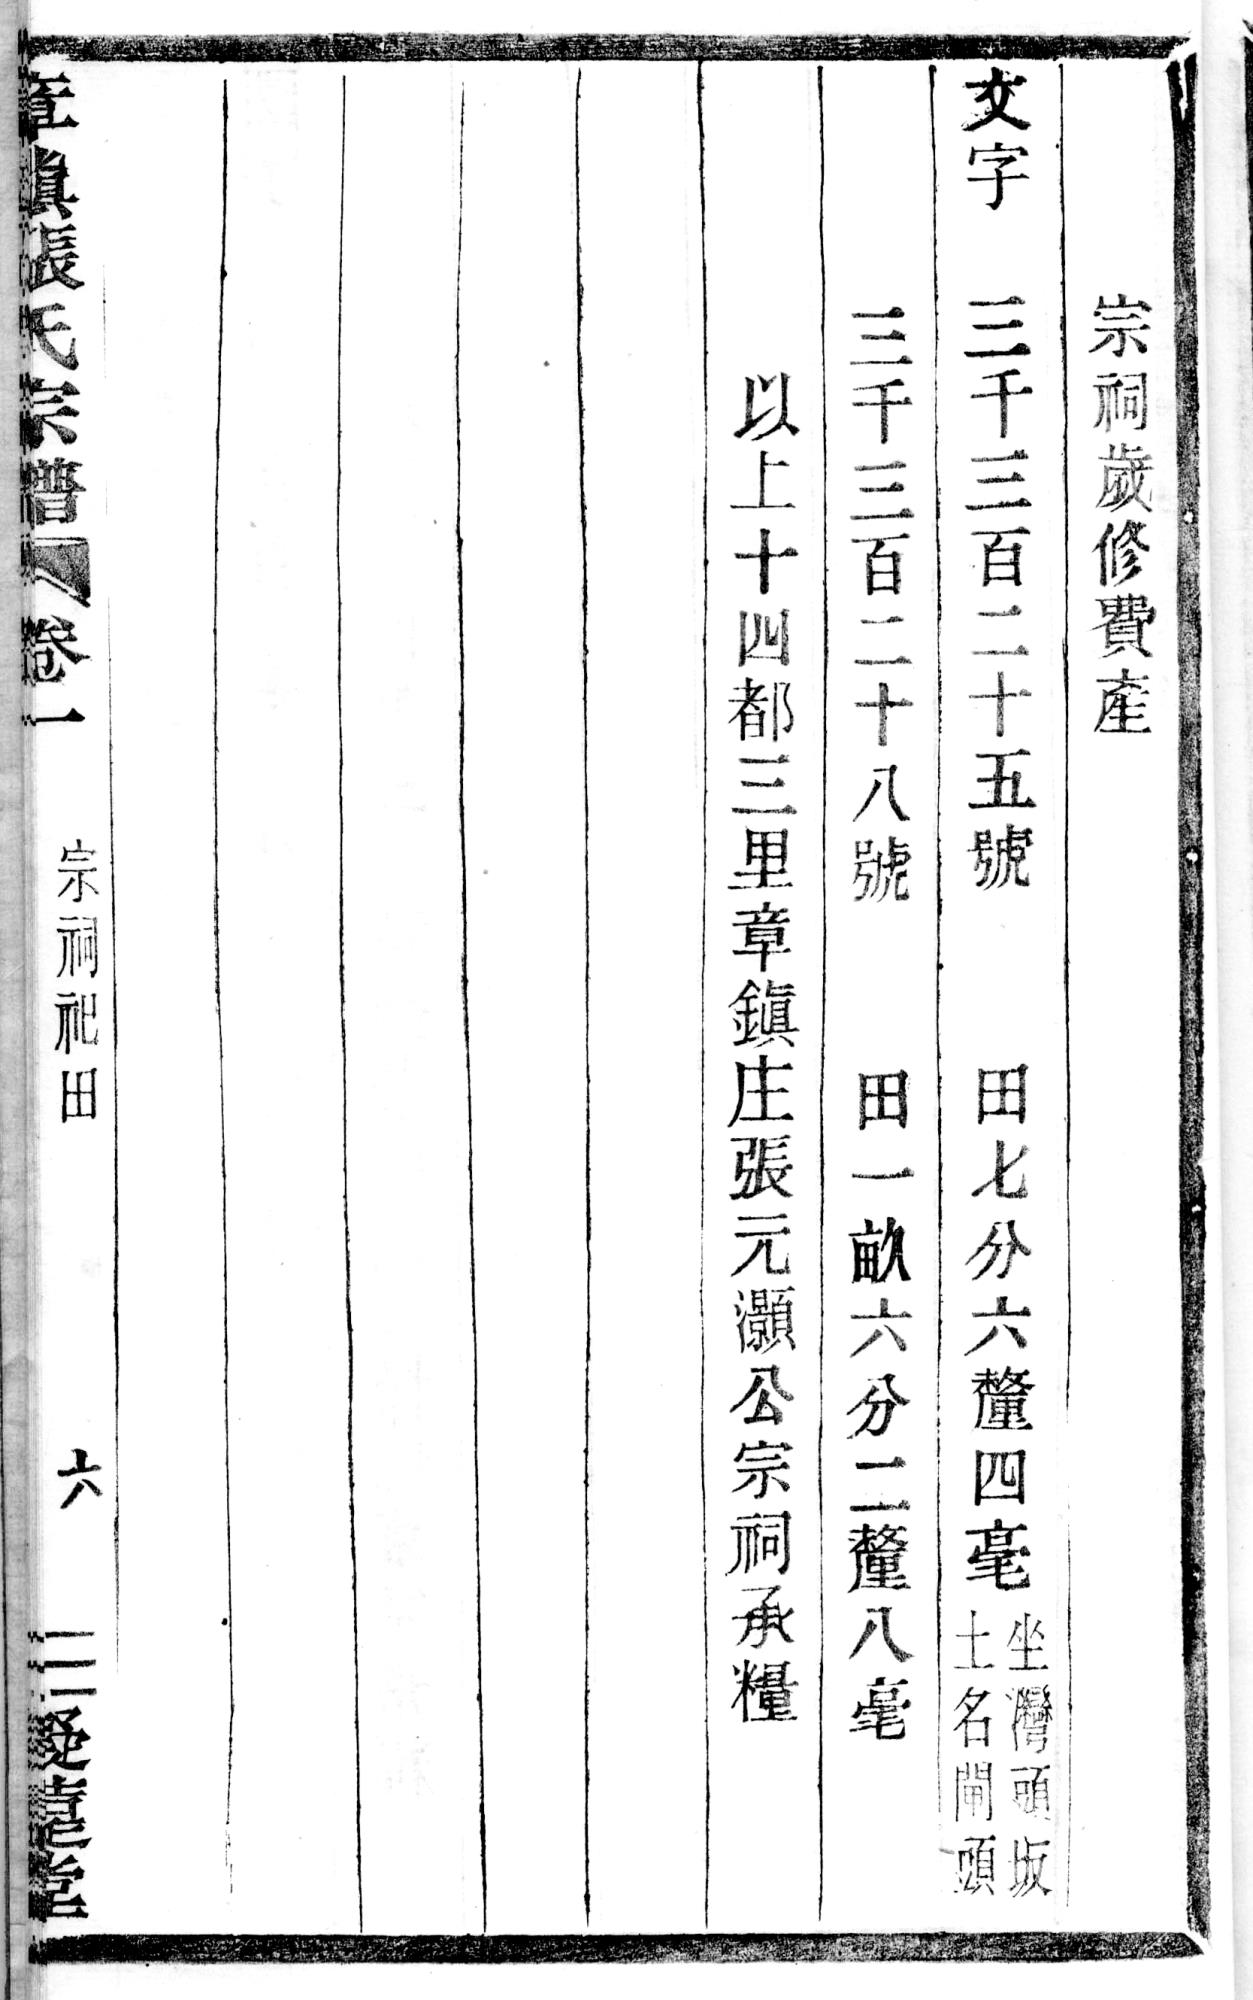 宗祠歲修費產
文字 三千三百二十五號 田七分六釐四毫 坐灣頭坂
土名閘頭
三千三百二十八號 田一畝六分二釐八毫
以上十四都三里章鎭庄張元灝公宗祠承糧
章鎭張氏宗譜 卷一 宗祠祀田 六